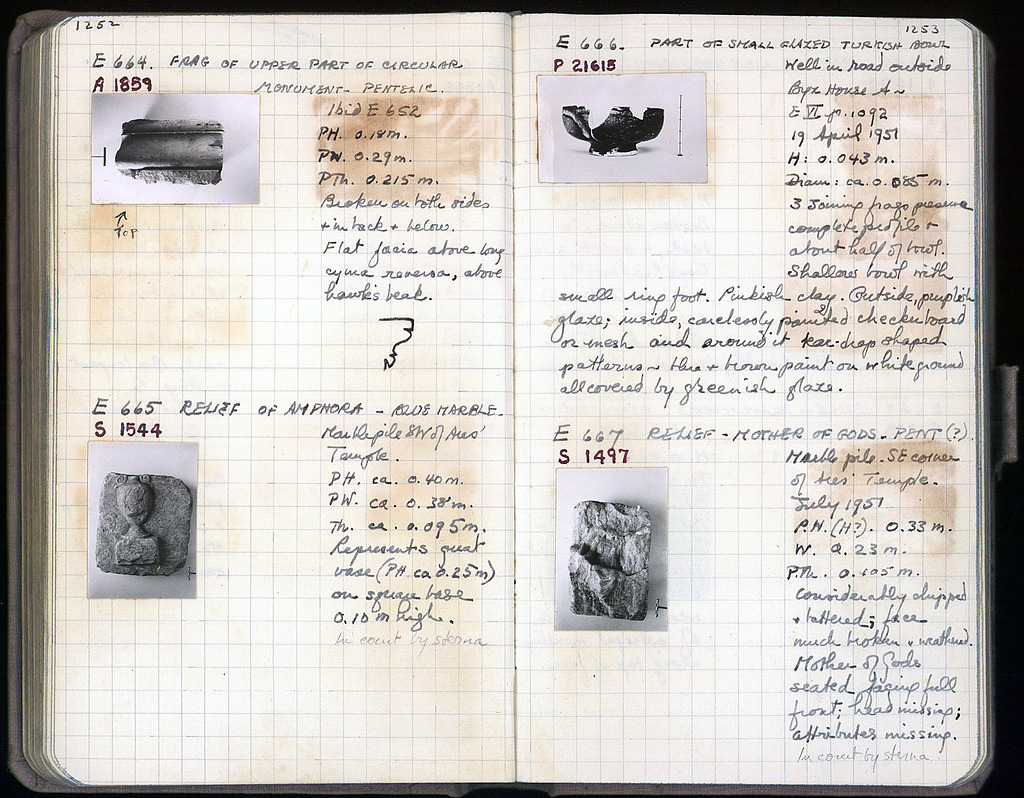 1252
E 664. FRAG OF UPPER PART OF CIRCULAR
A 1859
MONUMENT - PENTELIC.
Ibid E 652
PH. 0.18m.
PW. 0.29m.
PTh. 0.215 m.
Broken on both sides
+ in back + below.
Flat facia above long
cyma reversa, above
hawk's beak.
↑
TOP
E 665 RELIEF OF AMPHORA - BLUE MARBLE.
S 1544
Marble pile SW of Ares'
Temple.
PH. ca. 0.40m.
PW. ca. 0.38m.
Th. ca. 0.095m.
Represents great
vase (PH. ca 0.25m)
on square base
0.10 m high.
In court by sterna
1253
E 666. PART OF SMALL GLAZED TURKISH BOWL
P 21615
Well in road outside
Byz House A ~
E VI p. 1092
19 April 1951
H: 0.043 m.
Diam: ca. 0.085 m.
3 Joining frags preserve
complete profile +
about half of bowl.
Shallow bowl with
small ring foot. Pinkish clay. Outside, purplish
glaze; inside, carelessly painted checkerboard
or mesh and around it tear-drop shaped
patterns ~ blue + brown paint on white ground
all covered by greenish glaze.
E 667 RELIEF - MOTHER OF GODS - PENT (?).
S 1497
Marble pile. SE corner
of Ares' Temple.
July 1951
P.H. (H?). 0.33 m.
W. 0.23 m.
P.Th. 0.105 m.
Considerably chipped
+ battered; face
much broken + weathered.
Mother of Gods
seated facing full
front; head missing;
attributes missing.
In court by sterna.